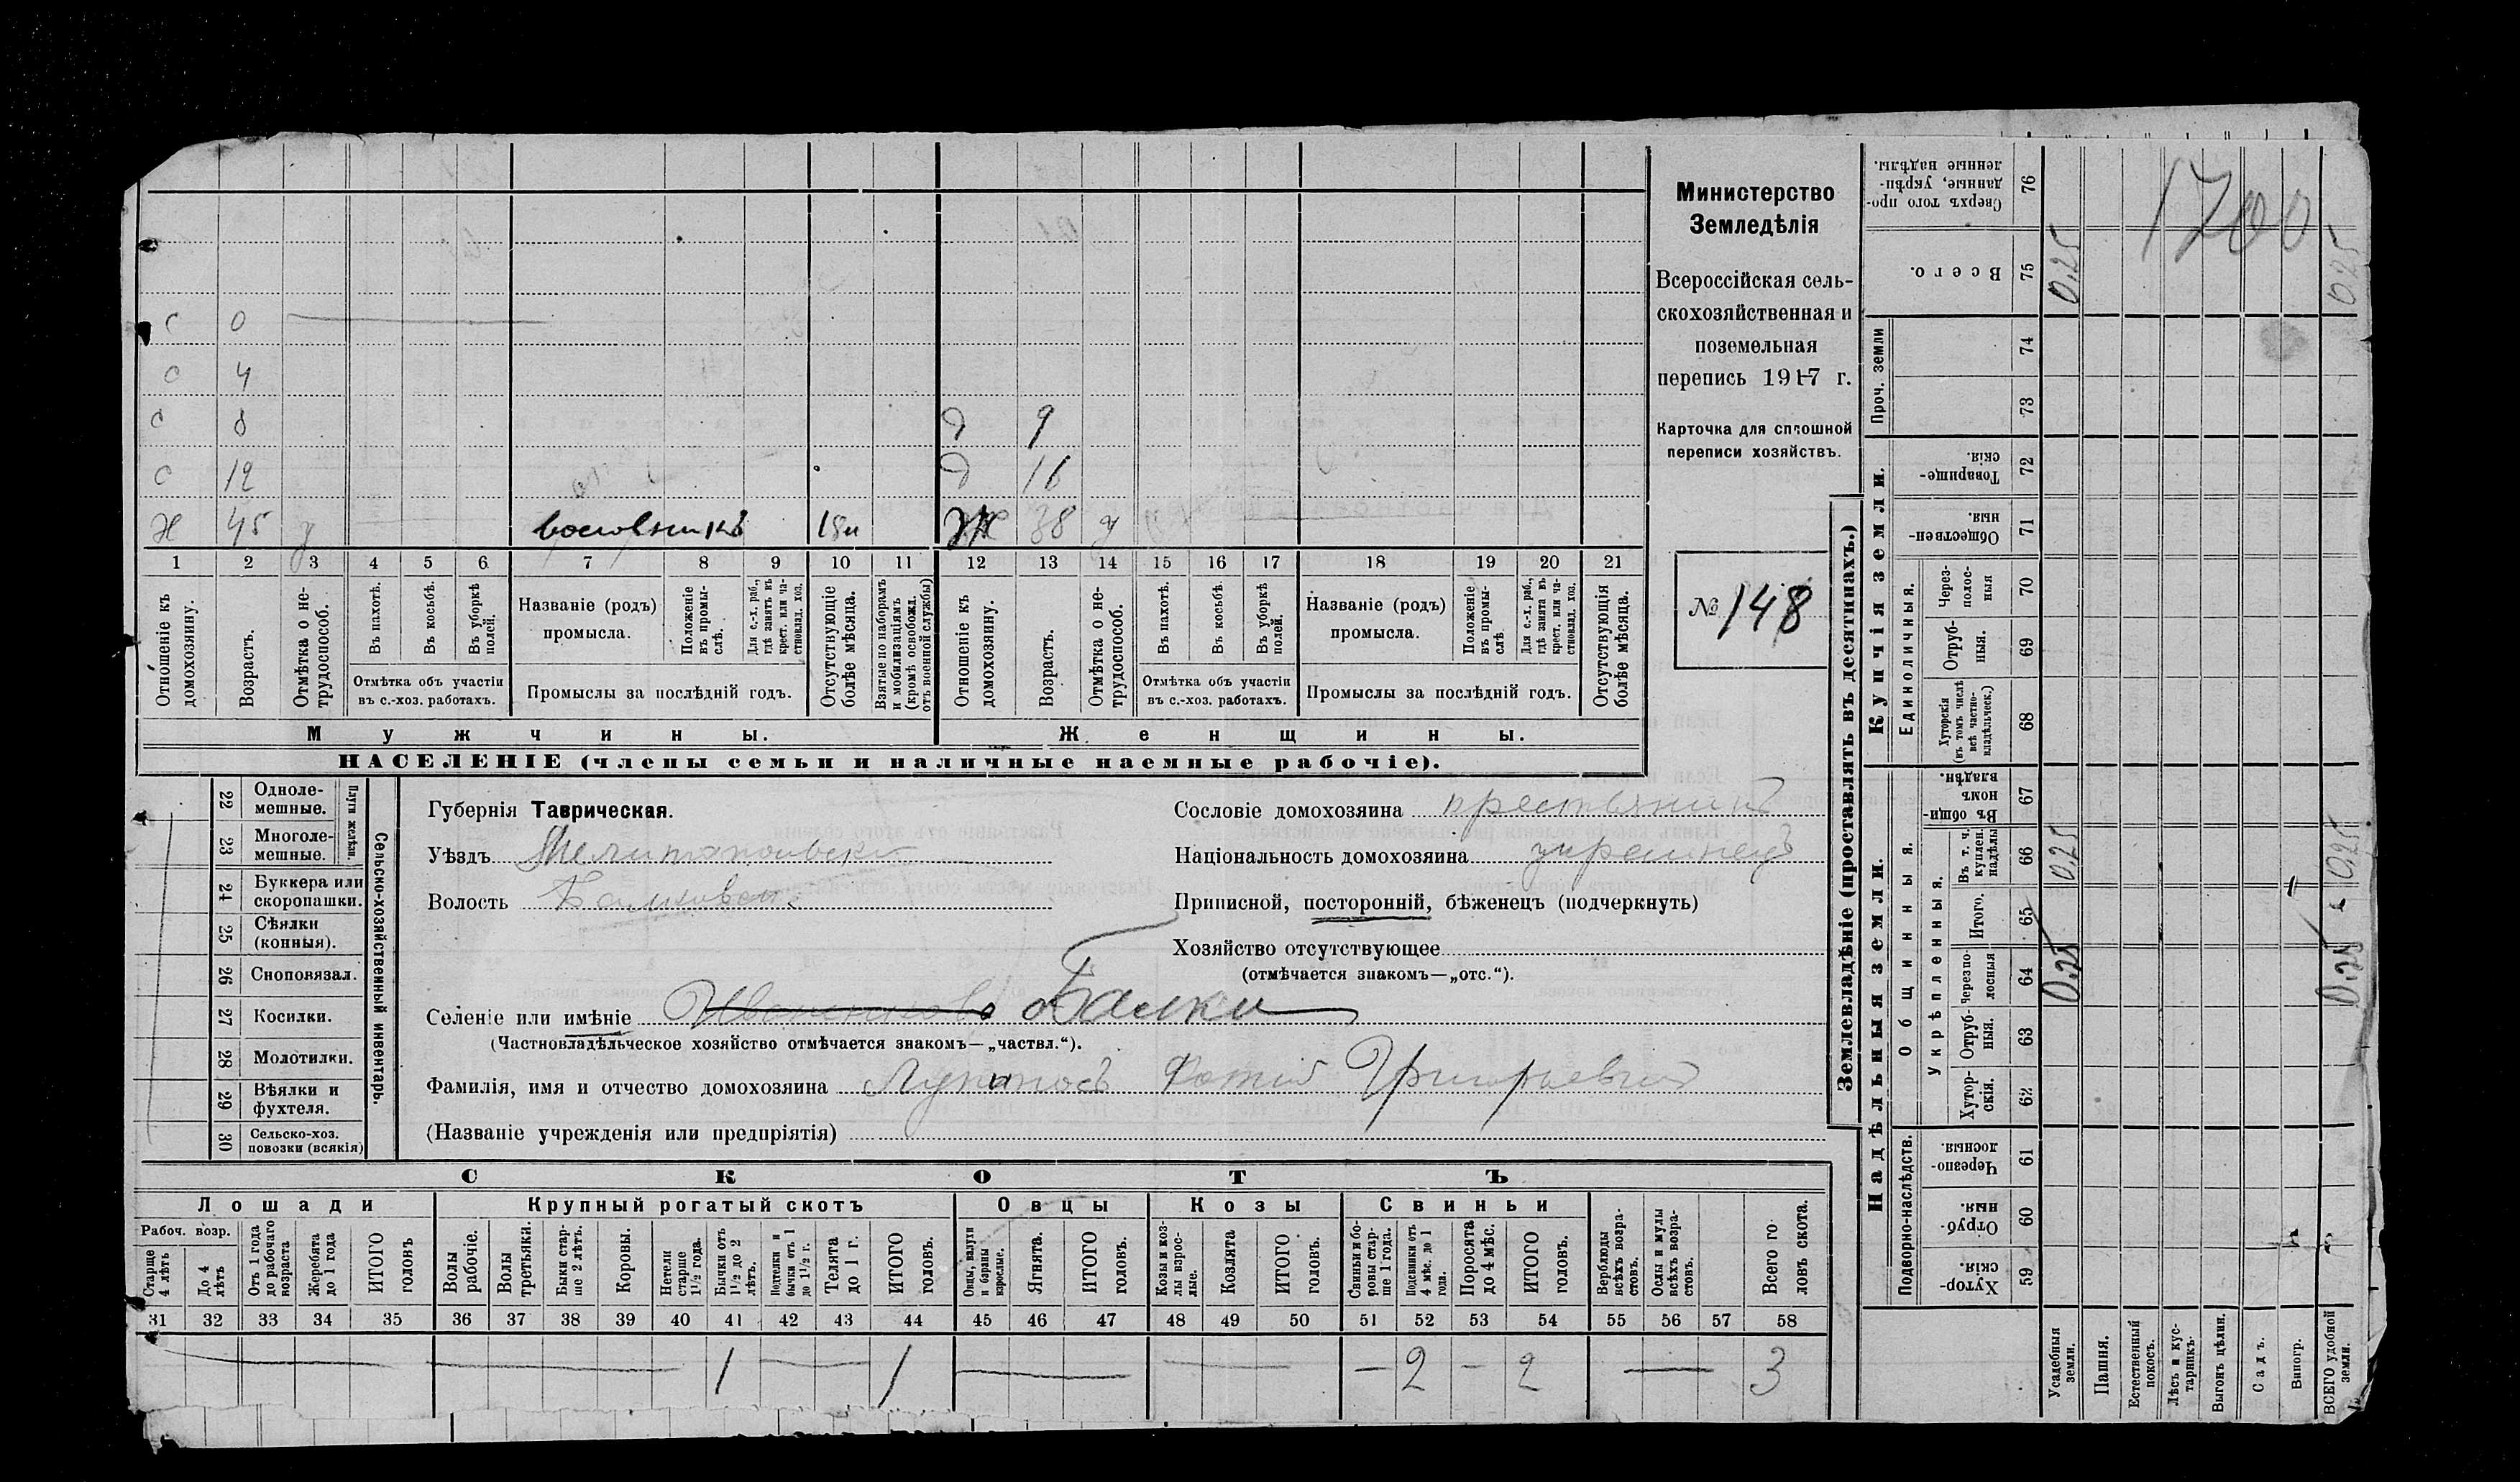 Министерство
Земледѣлія
Всероссійская сель-
скохозяйственная и
поземельная
перепись 1917 г.
Карточка для сплошной
переписи хозяйствъ.
№ 148
с 0
с 4
с 8 д 9
с 12 д 16
Х 45 у 38 у
1 2 3 4 5 6 7 8 9 10 11 12 13 14 15 16 17 18 19 20 21
Отношеніе къ домохозяину.
Возрастъ.
Отмѣтка о не-трудоспособ.
Въ пахотѣ.
Въ косьбѣ.
Въ уборкѣ полей.
Отмѣтка объ участіи
въ с.-хоз. работахъ.
Названіе (родъ)
промысла.
Положеніе въ промы-слѣ.
Для с.-х. раб., гдѣ занятъ въ крест. или ча-стновлад. хоз.
Промыслы за послѣдній годъ.
Отсутствующіе болѣе мѣсяца.
Взятые по наборамъ и мобилизаціямъ (кромѣ освобожд. отъ военной службы)
Отношеніе къ домохозяину.
Возрастъ.
Отмѣтка о не-трудоспособ.
Въ пахотѣ.
Въ косьбѣ.
Въ уборкѣ полей.
Отмѣтка объ участіи
въ с.-хоз. работахъ.
Названіе (родъ)
промысла.
Положеніе въ промы-слѣ.
Для с.-х. раб., гдѣ занята въ крест. или ча-стновлад. хоз.
Промыслы за послѣдній годъ.
Отсутствующія болѣе мѣсяца.
Мужчины.
Женщины.
НАСЕЛЕНІЕ (члены семьи и наличные наемные рабочіе).
Сельско-хозяйственный инвентарь.
Плуги желѣзн.
22 Однолемешные.
23 Многолемешные.
24 Буккера или скоропашки.
25 Сѣялки (конныя).
26 Сноповязал.
27 Косилки.
28 Молотилки.
29 Вѣялки и фухтеля.
30 Сельско-хоз. повозки (всякія)
Губернія Таврическая.
Уѣздъ Мелитопольскій
Волость Балковская
Сословіе домохозяина крестьянинъ
Національность домохозяина украинецъ
Приписной, посторонній, бѣженецъ (подчеркнуть)
Хозяйство отсутствующее
(отмѣчается знакомъ—„отс.“).
Селеніе или имѣніе Балки
(Частновладѣльческое хозяйство отмѣчается знакомъ—„частвл.“).
Фамилія, имя и отчество домохозяина Фотій Григорьевичъ
(Названіе учрежденія или предпріятія)
СКОТЪ
Лошади
Крупный рогатый скотъ
Овцы
Козы
Свиньи
Рабоч. возр.
Старше 4 лѣтъ
До 4 лѣтъ
Отъ 1 года до рабочаго возраста
Жеребята до 1 года
ИТОГО головъ
Волы рабочіе.
Волы третьяки.
Быки стар-ше 2 лѣтъ.
Коровы.
Нетели старше 1½ года.
Бычки отъ 1½ до 2 лѣтъ.
Подтелки и бычки отъ 1 до 1½ г.
Телята до 1 г.
ИТОГО головъ.
Овцы, валухи и бараны взрослые.
Ягнята.
ИТОГО головъ.
Козы и коз-лы взрос-лые.
Козлята
ИТОГО головъ.
Свиньи и бо-ровы стар-ше 1 года.
Подсвинки отъ 4 мѣс. до 1 года.
Поросята до 4 мѣс.
ИТОГО головъ.
Верблюды всѣхъ возра-стовъ.
Ослы и мулы всѣхъ возра-стовъ.
Всего го-ловъ скота.
31 32 33 34 35 36 37 38 39 40 41 42 43 44 45 46 47 48 49 50 51 52 53 54 55 56 57 58
1 1 — 2 — 2 — 3
Землевладѣніе (проставлять въ десятинахъ.)
Надѣльныя земли.
Купчія земли.
Проч. земли
Подворно-наслѣдств.
Общинныя.
Укрѣпленныя.
Единоличныя.
Сверхъ того про-данные, укрѣп-ленные надѣлы. 76
Всего. 75
74
73
Товарище-скія. 72
Обществен-ныя. 71
Через-полос-ныя 70
Отруб-ныя. 69
Хуторскія (въ томъ числѣ всѣ частно-владѣльческ.) 68
Въ общи-номъ владѣн. 67
Въ т. ч. куплен. надѣлы 66
Итого. 65
Черезпо-лосныя 64
Отруб-ныя. 63
Хутор-скія. 62
Черезпо-лосныя. 61
Отруб-ныя. 60
Хутор-скія. 59
Усадебныя земли.
Пашня.
Естественный покосъ.
Лѣсъ и кус-тарникъ.
Выгонъ цѣлин.
Садъ.
Виногр.
ВСЕГО удобной земли.
1700
0.25 0.25
0.25 0.25
0.25 0.25